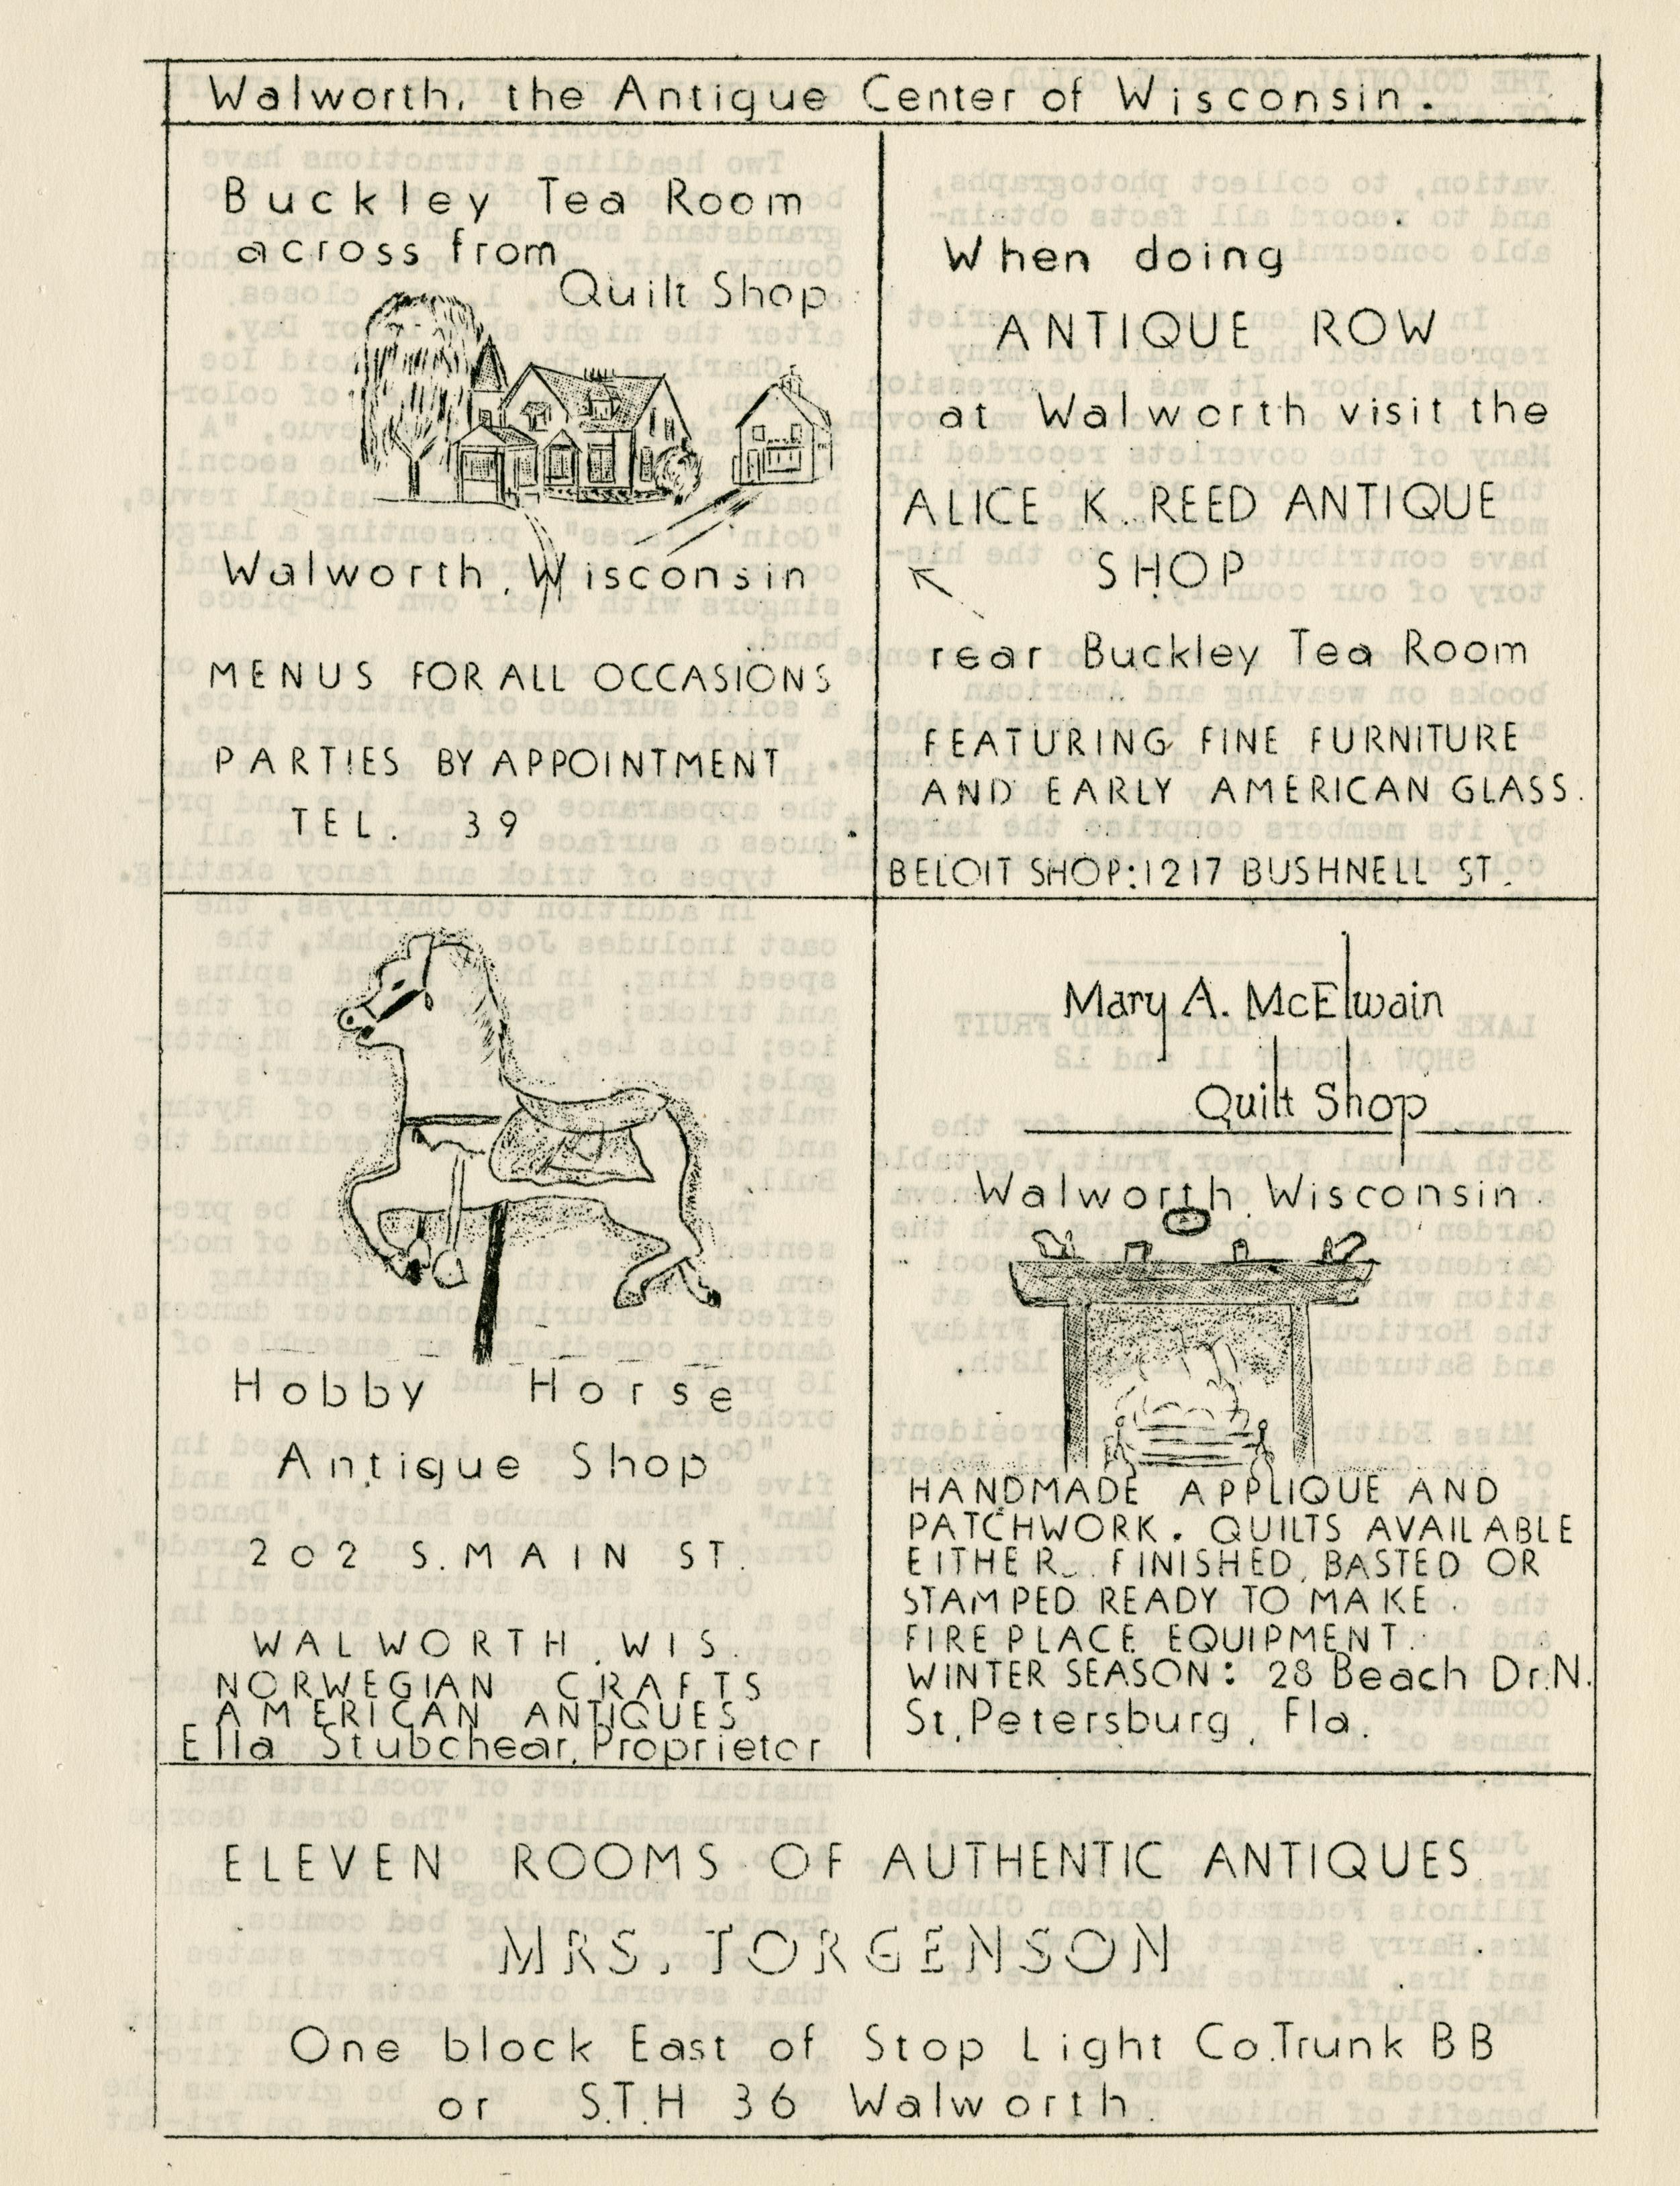 Walworth, the Antique Center of Wisconsin.
Buckley Tea Room
across from
Quilt Shop
Walworth, Wisconsin
MENUS FOR ALL OCCASIONS
PARTIES BY APPOINTMENT
TEL. 39
When doing
ANTIQUE ROW
at Walworth visit the
ALICE K. REED ANTIQUE
SHOP
rear Buckley Tea Room
FEATURING FINE FURNITURE
AND EARLY AMERICAN GLASS.
BELOIT SHOP: 1217 BUSHNELL ST.
Hobby Horse
Antique Shop
202 S. MAIN ST.
WALWORTH, WIS.
NORWEGIAN CRAFTS
AMERICAN ANTIQUES
Ella Stubchear, Proprietor
Mary A. McElwain
Quilt Shop
Walworth, Wisconsin.
HANDMADE APPLIQUE AND
PATCHWORK. QUILTS AVAILABLE
EITHER FINISHED, BASTED OR
STAMPED READY TO MAKE.
FIREPLACE EQUIPMENT.
WINTER SEASON: 28 Beach Dr. N.
St. Petersburg, Fla.
ELEVEN ROOMS OF AUTHENTIC ANTIQUES
MRS. TORGENSON
One block East of Stop Light Co. Trunk BB
or S.T.H 36 Walworth.